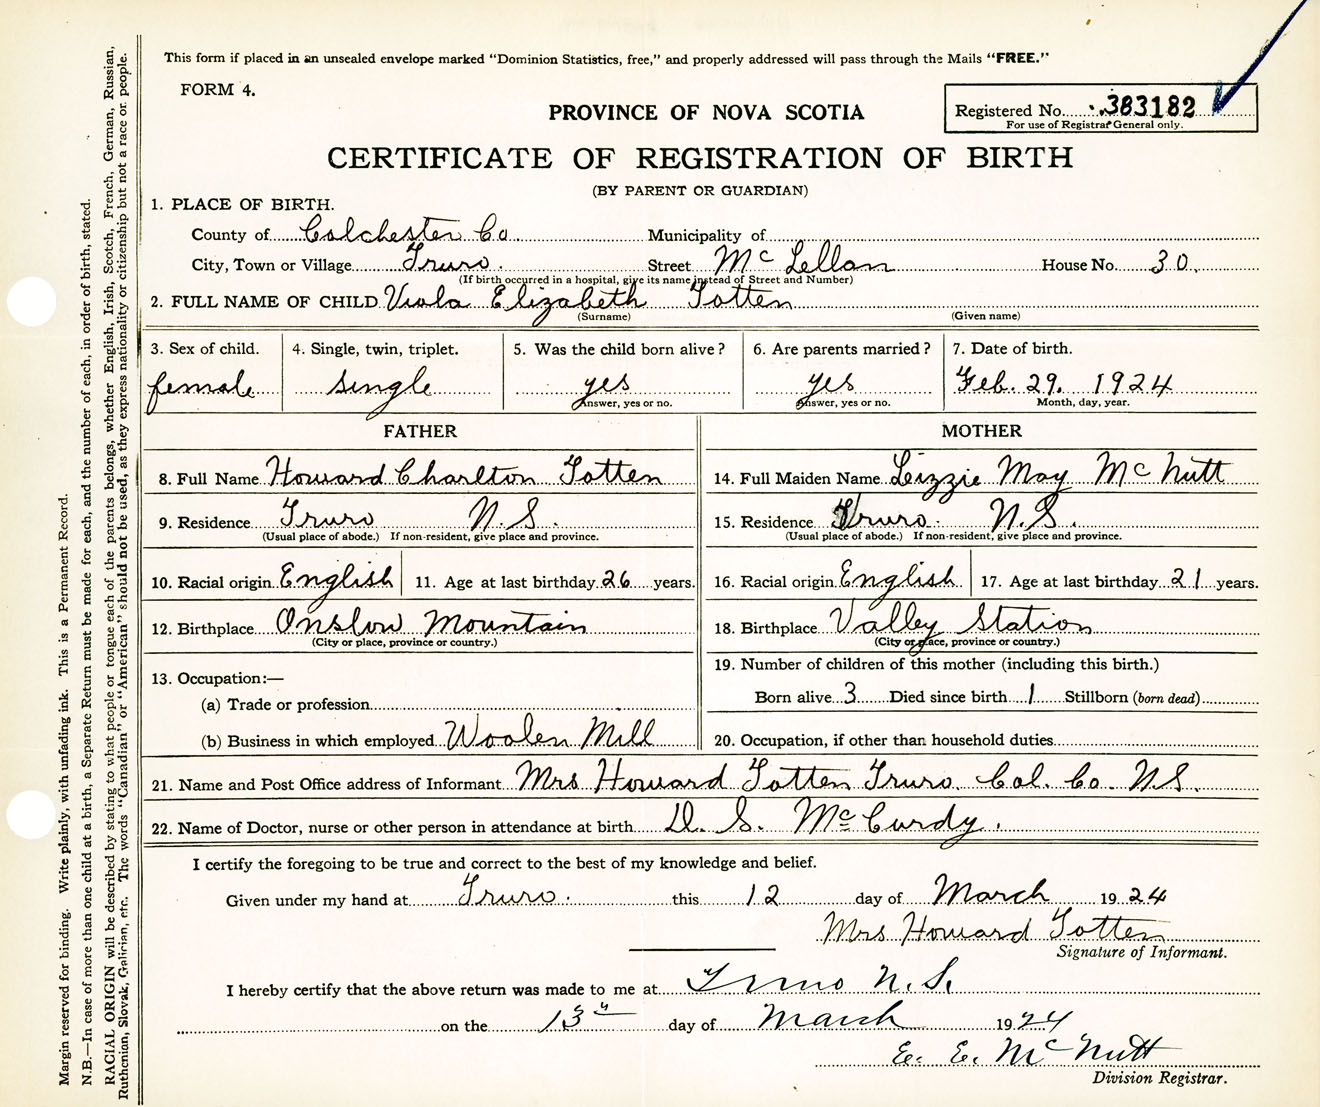 This form if placed in an unsealed envelope marked "Dominion Statistics, free," and properly addressed will pass through the Mails "FREE."
FORM 4.
Registered No. 383182
For use of Registrar General only.
PROVINCE OF NOVA SCOTIA
CERTIFICATE OF REGISTRATION OF BIRTH
(BY PARENT OR GUARDIAN)
1. PLACE OF BIRTH.
County of Colchester Co Municipality of
City, Town or Village Truro. Street McLellan House No. 30.
(If birth occurred in a hospital, give its name instead of Street and Number)
2. FULL NAME OF CHILD Viola Elizabeth Totten
(Surname) (Given name)
3. Sex of child. 4. Single, twin, triplet. 5. Was the child born alive? 6. Are parents married? 7. Date of birth.
female single yes yes Feb. 29. 1924
Answer, yes or no. Answer, yes or no. Month, day, year.
FATHER MOTHER
8. Full Name Howard Charlton Totten 14. Full Maiden Name Lizzie May McNutt
9. Residence Truro N.S. 15. Residence Truro. N.S.
(Usual place of abode.) If non-resident, give place and province. (Usual place of abode.) If non-resident, give place and province.
10. Racial origin English 11. Age at last birthday 26 years. 16. Racial origin English 17. Age at last birthday 21 years.
12. Birthplace Onslow Mountain 18. Birthplace Valley Station
(City or place, province or country.) (City or place, province or country.)
13. Occupation:— 19. Number of children of this mother (including this birth.)
(a) Trade or profession Born alive 3 Died since birth 1 Stillborn (born dead)
(b) Business in which employed Woolen Mill 20. Occupation, if other than household duties
21. Name and Post Office address of Informant Mrs Howard Totten Truro. Col. Co. N.S.
22. Name of Doctor, nurse or other person in attendance at birth D. S. McCurdy.
I certify the foregoing to be true and correct to the best of my knowledge and belief.
Given under my hand at Truro. this 12 day of March 1924
Mrs Howard Totten
Signature of Informant.
I hereby certify that the above return was made to me at Truro N.S.
on the 13th day of March 1924
E. E. McNutt
Division Registrar.
Margin reserved for binding. Write plainly, with unfading ink. This is a Permanent Record.
N.B.—In case of more than one child at a birth, a Separate Return must be made for each, and the number of each, in order of birth, stated.
RACIAL ORIGIN will be described by stating to what people or tongue each of the parents belongs, whether English, Irish, Scotch, French, German, Russian,
Ruthenian, Slovak, Galician, etc. The words "Canadian" or "American" should not be used, as they express nationality or citizenship but not a race or people.